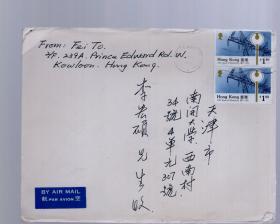 From: Fei To.
2/F. 239A. Prince Edward Rd. W.
Kowloon. Hung Kong.
Hong Kong 香港
$1.80
Hong Kong 香港
$1.80
天津市
南開大學西南村
34號4單元307號
李君碩先生收
BY AIR MAIL
航空 PAR AVION